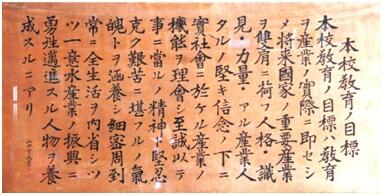 本校教育ノ目標
本校教育ノ目標ハ教育
ヲ産業ノ實際ニ即セシ
メ将来國家ノ重要産業
ヲ雙肩ニ荷フ人格、識
見、力量、アル産業人
タルノ堅キ信念ノ下ニ
實社會ニ於ケル産業ノ
機能ヲ理會シ至誠以テ
事ニ當ルノ精神ト堅忍
克ク艱苦ニ堪フルノ氣
魄トヲ涵養シ細密周到
常ニ全生活ヲ内省シツ
ツ一意水産業ノ振興ニ
勇往邁進スル人物ヲ養
成スルニアリ